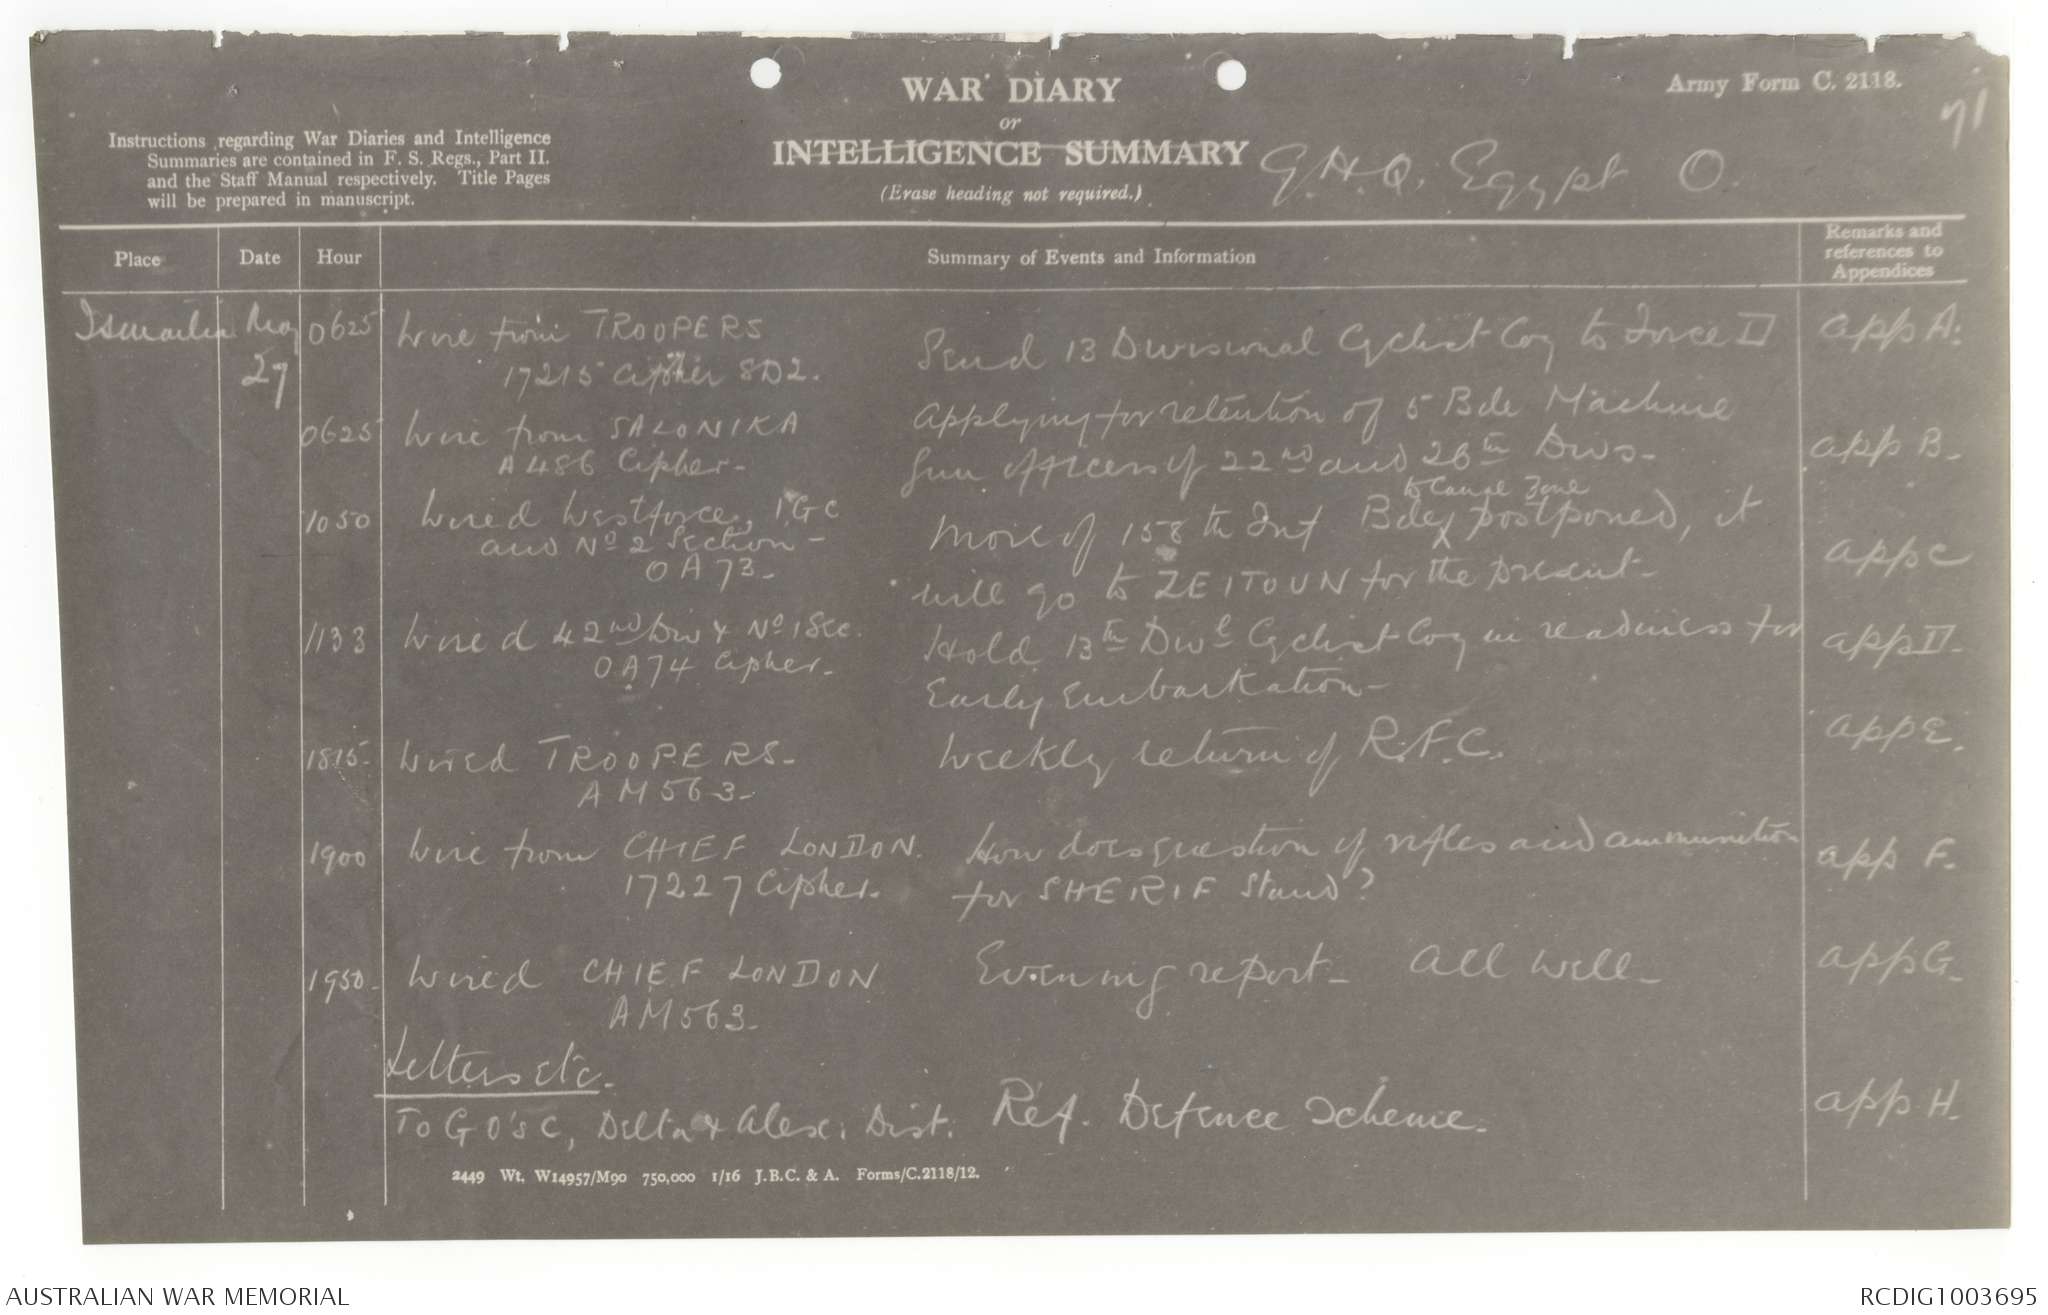 WAR DIARY
or
INTELLIGENCE SUMMARY
(Erase heading not required.)
Army Form C. 2118.
71
G.H.Q. Egypt O.
Instructions regarding War Diaries and Intelligence
Summaries are contained in F. S. Regs., Part II.
and the Staff Manual respectively. Title Pages
will be prepared in manuscript.
Place Date Hour Summary of Events and Information Remarks and references to Appendices
Ismailia May 27 0625 Wire from TROOPERS Send 13 Divisional Cyclist Coy to Force D app A.
17215 Cipher 8D2.
0625 Wire from SALONIKA Applying for retention of 5 Bde Machine app B.
A486 Cipher - Gun officers of 22nd and 26th Divs -
1050 Wired Westforce, IGC Move of 158th Inf Bde to Canal Zone postponed, it app C
and No 2 Section - will go to ZEITOUN for the present -
OA73 -
1133 Wired 42nd Div & No 1 Sec. Hold 13th Divl Cyclist Coy in readiness for app D -
OA74 Cipher - Early Embarkation -
1815 - Wired TROOPERS - Weekly return of R.F.C. app E.
AM563 -
1900 Wire from CHIEF LONDON. How does question of rifles and ammunition app F.
17227 Cipher - for SHERIF stand?
1950 - Wired CHIEF LONDON Evening report - All well - app G.
AM563 -
Letters etc -
To GO'sC, Delta & Alex. Dist. Ref. Defence Scheme - app H.
2449 Wt. W14957/M90 750,000 1/16 J.B.C. & A. Forms/C.2118/12.
AUSTRALIAN WAR MEMORIAL
RCDIG1003695